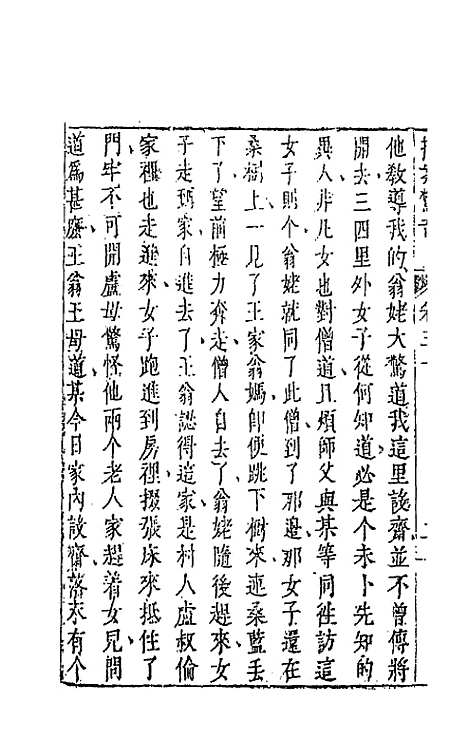 拍案驚奇 卷三十
他教導我的翁姥大驚道我這里設齋並不曾傳將
開去三四里外女子從何知道必是个未卜先知的
異人非凡女也對僧道且煩師父與某等同往訪這
女子則个翁姥就同了此僧到了那邊那女子還在
桑樹上一見了王家翁媽即便跳下樹來連桑藍丢
下了望前極力奔走僧人自去了翁姥隨後趕來女
子走到家自進去了王翁認得這家是村人盧叔倫
家裡也走進來女子跑進到房裡掇張床來抵住了
門牢不可開盧母驚怪他兩个老人家趕着女兒問
道爲甚麽王翁王母道某今日家內設齋落末有个